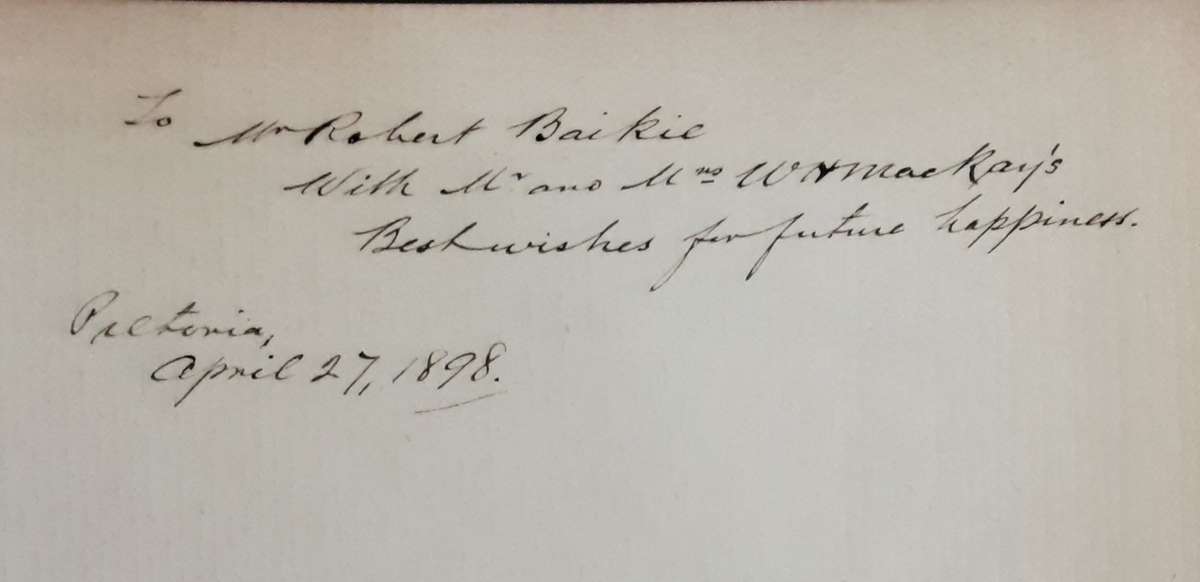 To Mr Robert Baikie
With Mr and Mrs W H MacKay's
Best wishes for future happiness.
Pretoria,
April 27, 1898.